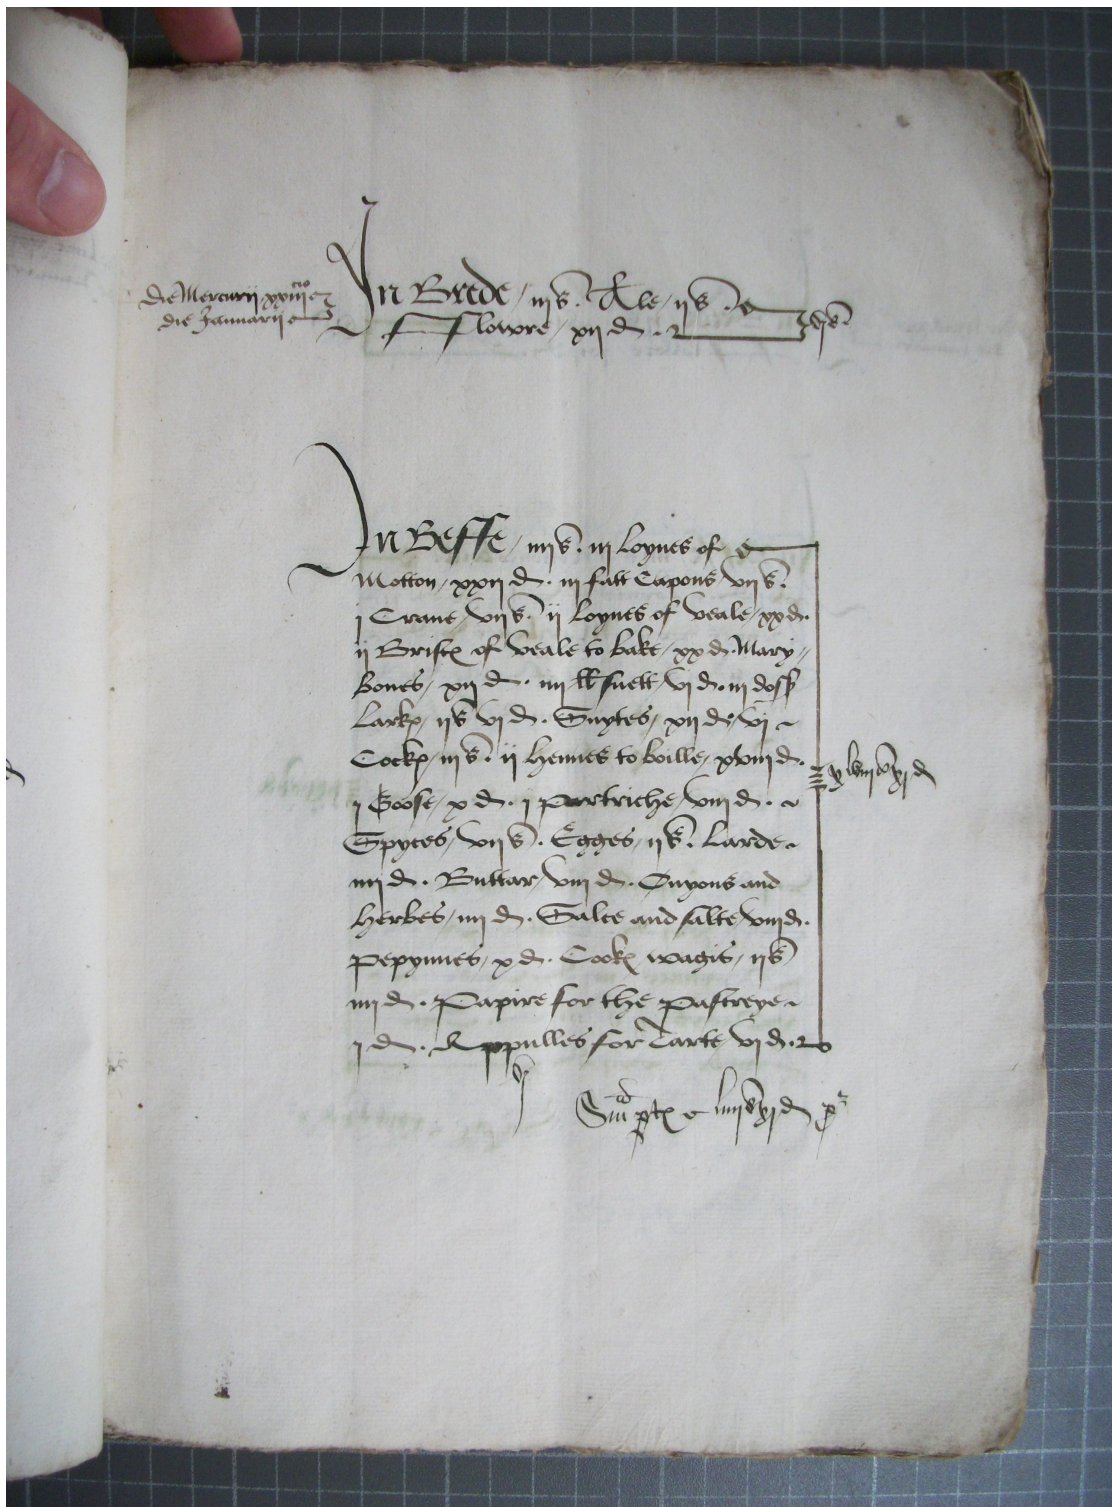 Die Mercurii xxiiicio
die Januarii
In Brede / iii s. Ale / ii s.
Flowre / xii d. vi s.
In Beffe / iiii s. iii Loynes of
Motton / xxii d. iii fatt Capons vii s.
i Crane / vii s. ii Loynes of Veale / xx d.
ii Brist of Veale to bake / xx d. Mary
Bones / xii d. iiii ll suett / vi d. iii doss
Lark / ii s vi d. Snytes / xii d. vi
Cock / iii s. ii Hennes to boille / xviii d.
xlviii s xi d
i Goose / x d. i Partriche / viii d.
Spyces / vii s. Egges / ii s. Larde
iiii d. Buttar / viii d. Onyons and
Herbes / iiii d. Salce and salte / viii d.
Pepynnes / x d. Cook wagis / ii s
iiii d. Papire for the Pastreye
i d. Appulles for Tarte vi d.
liiii s xi d